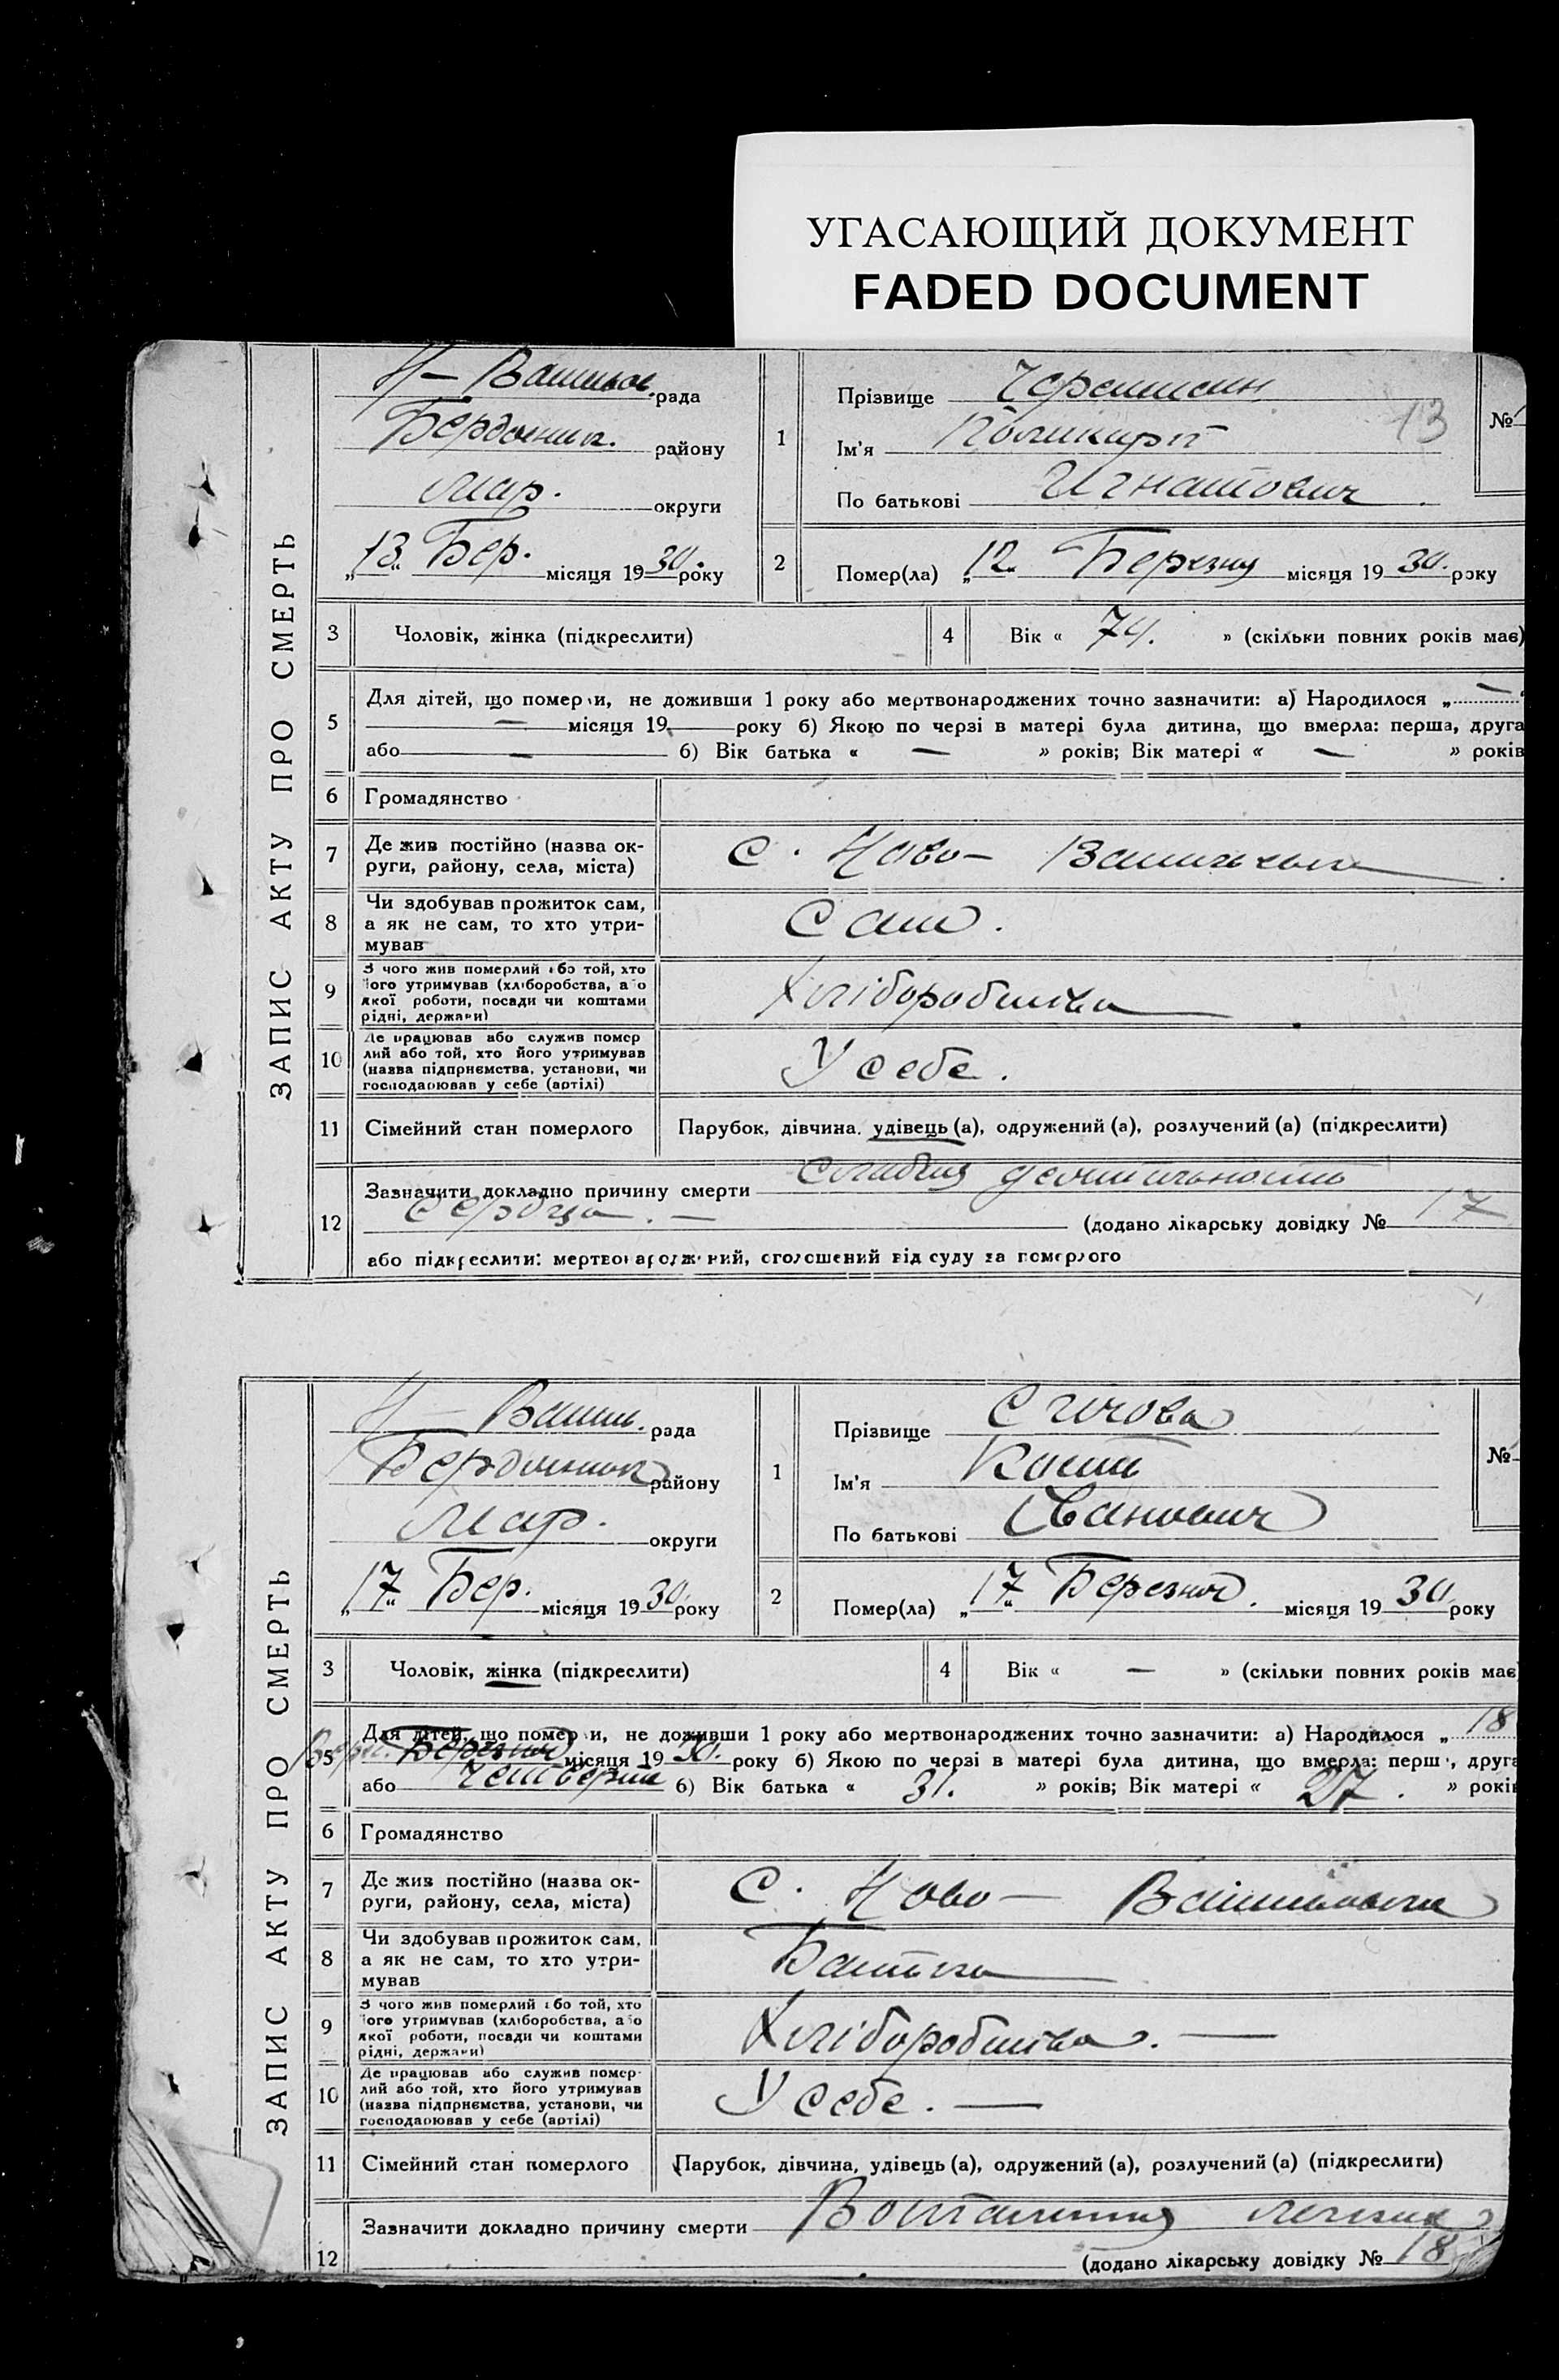 УГАСАЮЩИЙ ДОКУМЕНТ
FADED DOCUMENT
ЗАПИС АКТУ ПРО СМЕРТЬ
рада
району
Мар. округи
„13“ Бер. місяця 1930 року
1
Прізвище
Ім'я
13
По батькові Игнатович
№
2
Помер(ла) „12 Березня місяця 1930. року
3 Чоловік, жінка (підкреслити)
4 Вік « 74. » (скільки повних років має)
5
Для дітей, що померли, не доживши 1 року або мертвонароджених точно зазначити: а) Народилося „ —
— місяця 19 року б) Якою по черзі в матері була дитина, що вмерла: перша, друга
або — б) Вік батька « — » років; Вік матері « — » років
6 Громадянство
7 Де жив постійно (назва ок-
руги, району, села, міста)
с. Ново-
8 Чи здобував прожиток сам,
а як не сам, то хто утри-
мував
Сам.
9 З чого жив померлий або той, хто
його утримував (хліборобства, або
якої роботи, посади чи коштами
рідні, держави)
Хліборобства
10 Де працював або служив помер
лий або той, хто його утримував
(назва підприємства, установи, чи
господарював у себе (артілі)
У себе.
11 Сімейний стан померлого
Парубок, дівчина, удівець (а), одружений (а), розлучений (а) (підкреслити)
12
Зазначити докладно причину смерти
сердца. —
(додано лікарську довідку № 17
або підкреслити: мертвонароджений, оголошений від суду за померлого
ЗАПИС АКТУ ПРО СМЕРТЬ
рада
району
Мар. округи
„17“ Бер. місяця 1930 року
1
Прізвище
Ім'я
По батькові Иванович
№
2
Помер(ла) „17“ Березня. місяця 1930 року
3 Чоловік, жінка (підкреслити)
4 Вік « — » (скільки повних років має
5
Для дітей, що померли, не доживши 1 року або мертвонароджених точно зазначити: а) Народилося „18
Березня місяця 1930. року б) Якою по черзі в матері була дитина, що вмерла: перша, друга
або б) Вік батька « 31. » років; Вік матері « 27. » років
6 Громадянство
7 Де жив постійно (назва ок-
руги, району, села, міста)
С. Ново —
8 Чи здобував прожиток сам,
а як не сам, то хто утри-
мував
Батька
9 З чого жив померлий або той, хто
його утримував (хліборобства, або
якої роботи, посади чи коштами
рідні, держави)
Хліборобства. —
10 Де працював або служив помер-
лий або той, хто його утримував
(назва підприємства, установи, чи
господарював у себе (артілі)
У себе. —
11 Сімейний стан померлого
Парубок, дівчина, удівець (а), одружений (а), розлучений (а) (підкреслити)
12
Зазначити докладно причину смерти
(додано лікарську довідку № 18